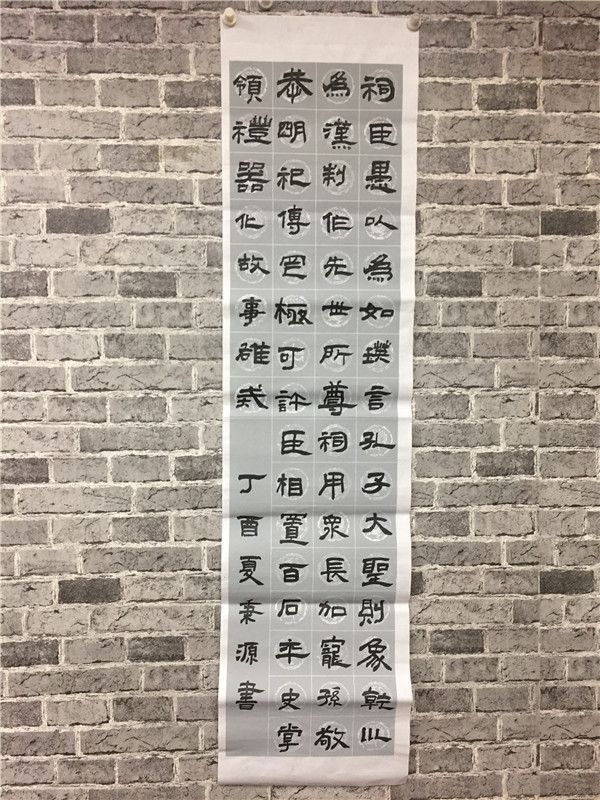 祠臣愚以為如瑛言孔子大聖則象乾巛
為漢制作先世所尊祠用眾長加寵孫敬
恭明祀傳罔極可許臣相置百石卒史掌
領禮器化故事雄戒
丁酉夏秉源書